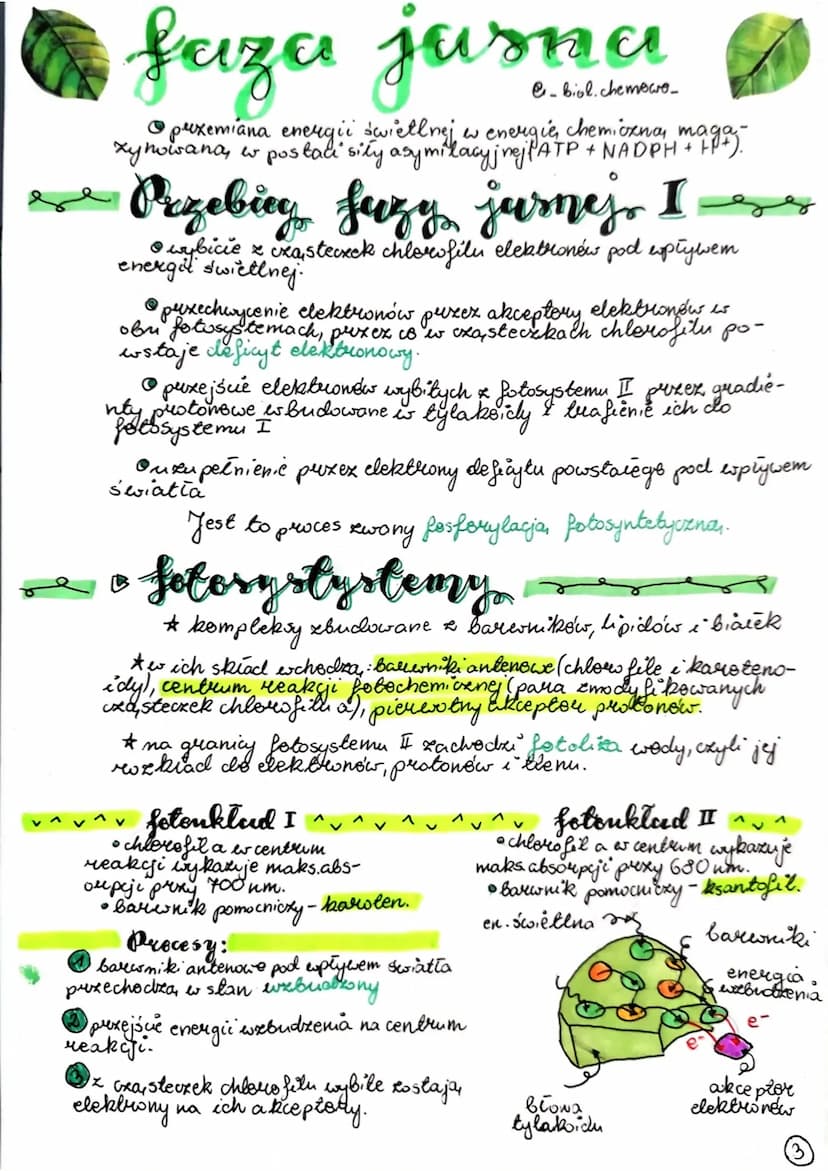 faza jasna
@_biol.chemowo_
przemiana energii świetlnej w energię chemiczną maga-
zynowaną w postaci siły asymilacyjnej (ATP + NADPH + H+).
Przebieg fazy jasnej I
wybicie z cząsteczek chlorofilu elektronów pod wpływem
energii świetlnej.
przechwycenie elektronów przez akceptory elektronów w
obu fotosystemach, przez co w cząsteczkach chlorofilu po-
wstaje deficyt elektronowy.
przejście elektronów wybitych z fotosystemu II przez gradie-
nty protonowe wbudowane w tylakoidy i trafienie ich do
fotosystemu I
uzupełnienie przez elektrony deficytu powstałego pod wpływem
światła
Jest to proces zwany fosforylacją fotosyntetyczną.
fotosystystemy
kompleksy zbudowane z barwników, lipidów i białek
w ich skład wchodzą: barwniki antenowe (chlorofile i karoteno-
idy), centrum reakcji fotochemicznej (para zmodyfikowanych
cząsteczek chlorofilu a), pierwotny akceptor protonów.
na granicy fotosystemu II zachodzi fotoliza wody, czyli jej
rozkład do elektronów, protonów i tlenu.
fotoukład I
chlorofil a w centrum
reakcji wykazuje maks. abs-
orpcji przy 700 nm.
barwnik pomocniczy - karoten.
fotoukład II
chlorofil a w centrum wykazuje
maks. absorpcji przy 680 nm.
barwnik pomocniczy - ksantofil.
Procesy:
1 barwniki antenowe pod wpływem światła
przechodzą w stan wzbudzony
2 przejście energii wzbudzenia na centrum
reakcji.
3 z cząsteczek chlorofilu wybite zostają
elektrony na ich akceptory.
en. świetlna
barwniki
energia
wzbudzenia
e-
e-
akceptor
elektronów
błona
tylakoidu
3